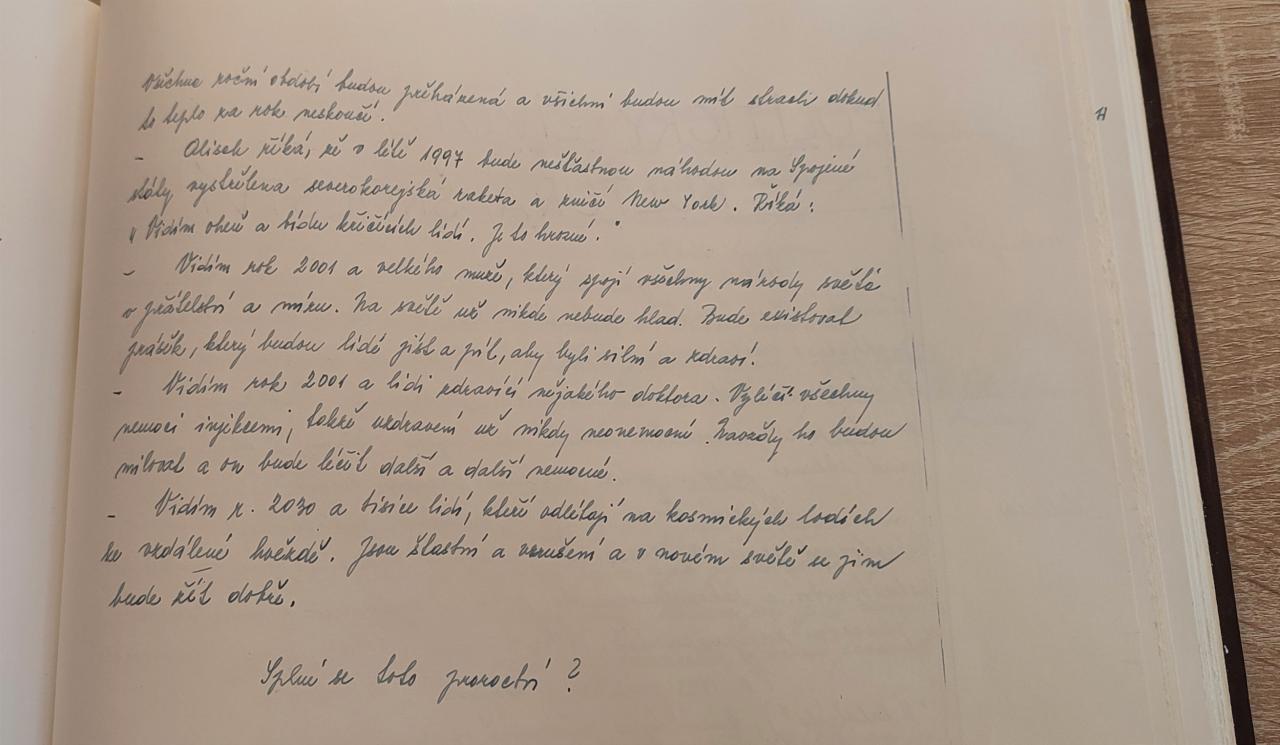 Všechna roční období budou přeházená a všichni budou mít strach dokud
to teplo za rok neskončí.
- Alisch říká, že v létě 1997 bude nešťastnou náhodou na Spojené
státy vystřelena severokorejská raketa a zničí New York. Říká:
"Vidím oheň a bídu křičících lidí. Je to hrozné."
- Vidím rok 2001 a velkého muže, který spojí všechny národy světa
v přátelství a míru. Na světě už nikde nebude hlad. Bude existovat
prášek, který budou lidé jíst a pít, aby byli silní a zdraví.
- Vidím rok 2001 a lidi zdravící nějakého doktora. Vyléčí všechny
nemoci injekcemi, takže uzdravení už nikdy neonemocní. Navždy ho budou
milovat a on bude léčit další a další nemocné.
- Vidím r. 2030 a tisíce lidí, kteří odlétají na kosmických lodích
ke vzdálené hvězdě. Jsou šťastní a vzrušení a v novém světě se jim
bude žít dobře.
Splní se toto proroctví?